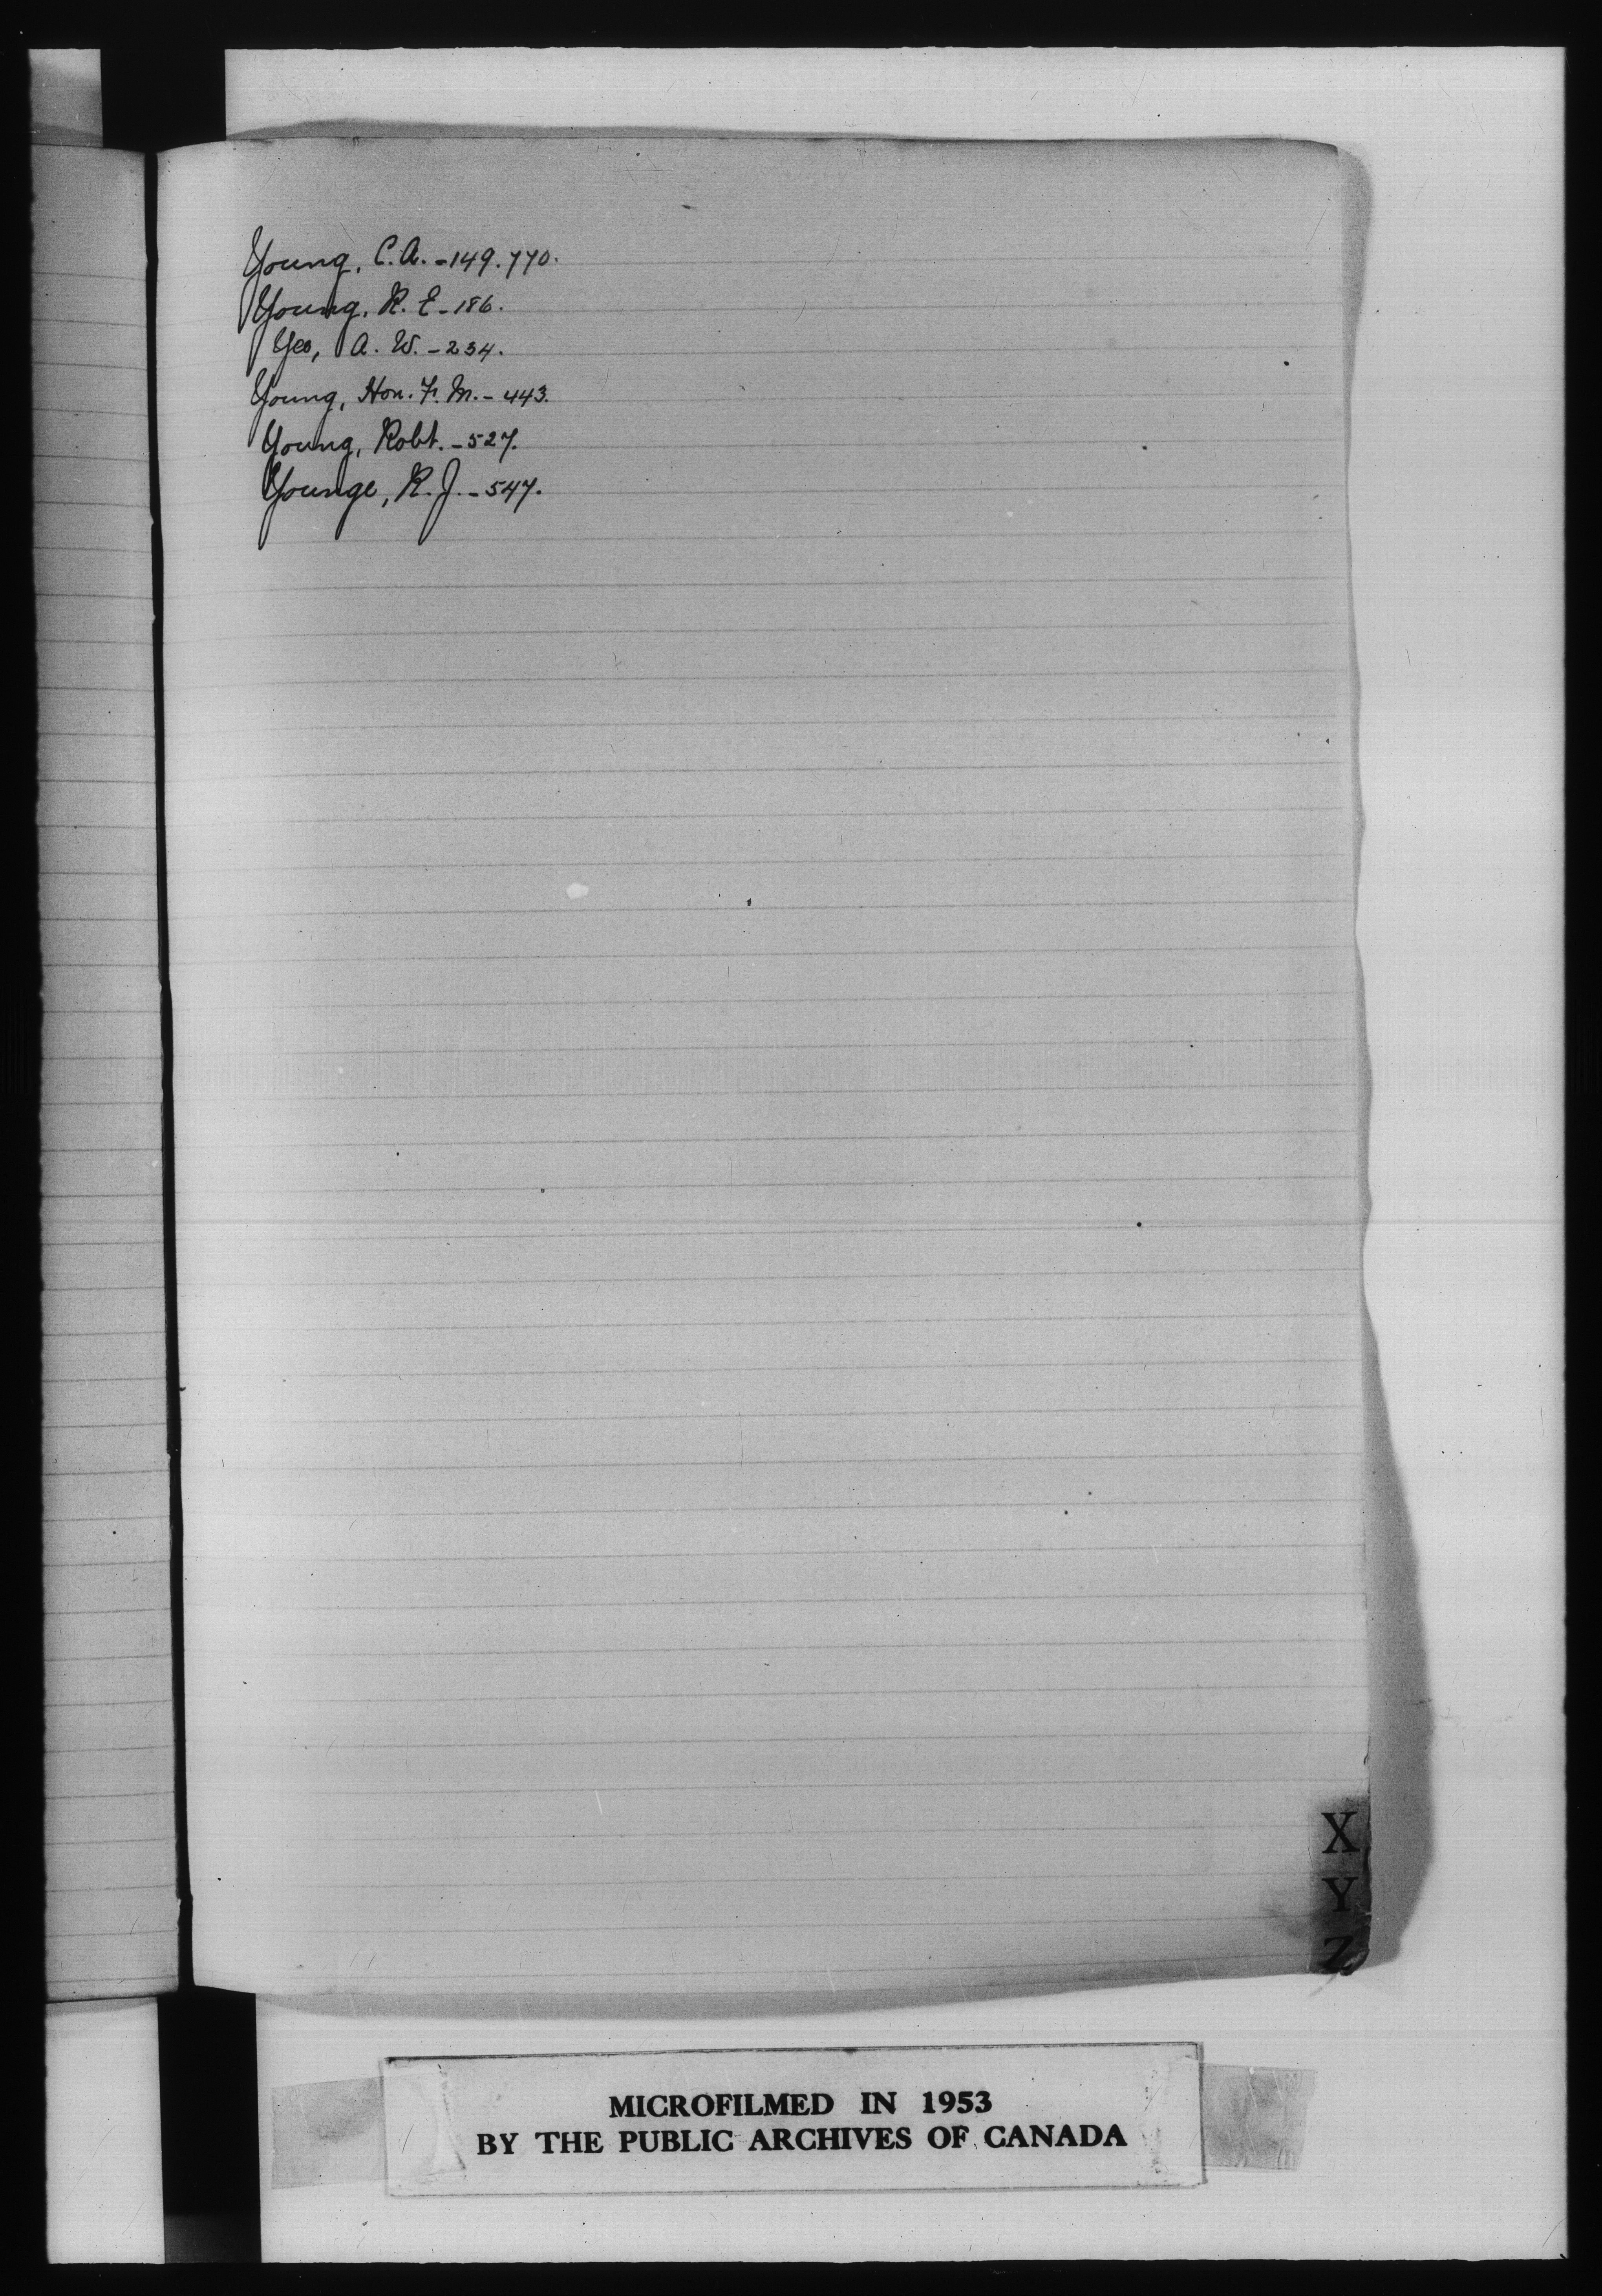 Young, C. A. - 149. 770.
Young, R. E - 186.
Yeo, A. W. - 234.
Young, Hon. F. M. - 443.
Young, Robt. - 527.
Younge, R. J. - 547.
X
Y
Z
MICROFILMED IN 1953
BY THE PUBLIC ARCHIVES OF CANADA